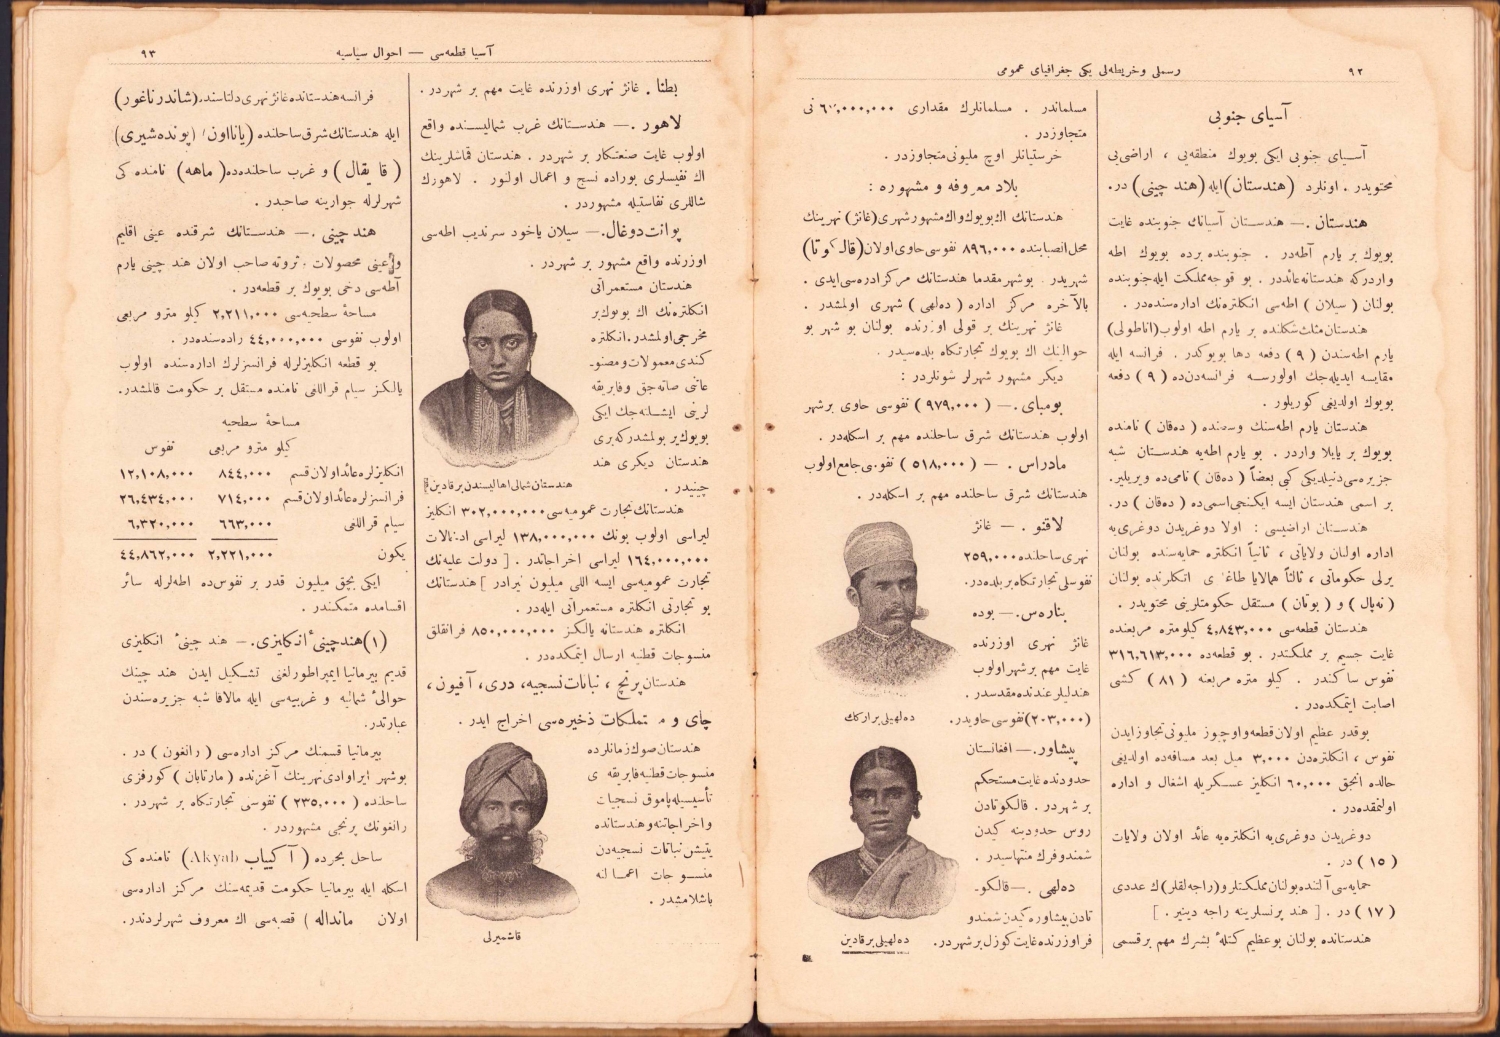 ٩٢
رسملی وخریطه‌لی یکی جغرافیای عمومی
آسیای جنوبی
آسیای جنوبی ایکی بویوك منطقه‌یی ، اراضی‌یی
محتویدر . اونلرد (هندستان) ایله (هند چینی) در.
هندستان .— هندستان آسیانك جنوبنده غایت
بویوك بر یارم آطه‌در . جنوبنده برده بویوك اطه
واردركه هندستانه عائددر . بو قوجه مملكت ایله جنوبنده
بولنان (سیلان) اطه‌سی انكلتره‌نك اداره‌سنده‌در .
هندستان مثلث شكلنده بر یارم اطه اولوب (اناطولی)
یارم اطه‌سندن (٩) دفعه دها بویوكدر . فرانسه ایله
مقایسه ایدیله‌جك اولورسه فرانسه‌دن‌ده (٩) دفعه
بویوك اولدیغی كوریلور .
هندستان یارم اطه‌سنك وسطنده (ده‌قان) نامنده
بویوك بر یایلا واردر . بو یارم اطه‌یه هندستان شبه
جزیره‌سی دنیلدیكی كبی بعضاً (ده‌قان) نامی‌ده ویریلیر.
بر اسمی هندستان ایسه ایكنجی اسمی‌ده (ده‌قان) در.
هندستان اراضیسی : اولا دوغریدن دوغری‌یه
اداره اولنان ولایاتی ، ثانیاً انكلتره حمایه‌سنده بولنان
یرلی حكوماتی ، ثالثاً هیمالایا طاغلری اتكلرنده بولنان
(نه‌پال) و (بوتان) مستقل حكومتلرینی محتویدر .
هندستان قطعه‌سی ٤,٨٤٣,٠٠٠ كیلومتره مربعنده
غایت جسیم بر مملكتدر . بو قطعه‌ده ٣١٦,٦١٣,٠٠٠
نفوس ساكندر . كیلو متره مربعنه (٨١) كشی
اصابت ایتمكده‌در .
بوقدر عظیم اولان قطعه و اوچیوز ملیونی تجاوز ایدن
نفوس ، انكلتره‌دن ٣,٠٠٠ میل بعد مسافه‌ده اولدیغی
حالده انجق ٦٠,٠٠٠ انكلیز عسكریله اشغال و اداره
اولنمقده‌در .
دوغریدن دوغری‌یه انكلتره‌یه عائد اولان ولایات
(١٥) در .
حمایه‌سی آلتنده بولنان مملكتلر و(راجه‌لقلر)ك عددی
(١٧) در . [ هند پرنسلرینه راجه دینیر . ]
هندستانده بولنان بو عظیم كتلهٔ بشرك مهم بر قسمی
مسلماندر . مسلمانلرك مقداری ٦٠,٠٠٠,٠٠٠ نی
متجاوزدر .
خرستیانلر اوچ ملیونی متجاوزدر .
بلاد معروفه و مشهوره :
هندستانك اك بویوك و اك مشهور شهری (غانژ) نهرینك
محل انصبابنده ٨٩٦,٠٠٠ نفوسی حاوی اولان (قالكوتا)
شهریدر. بو شهر مقدما هندستانك مركز اداره‌سی ایدی .
بالآخره مركز اداره (ده‌لهی) شهری اولمشدر .
غانژ نهرینك بر قولی اوزرنده بولنان بو شهر بو
حوالینك اك بویوك تجارتكاه بلده‌سیدر .
دیكر مشهور شهرلر شونلردر :
بومبای .— (٩٧٩,٠٠٠) نفوسی حاوی بر شهر
اولوب هندستانك شرق ساحلنده مهم بر اسكله‌در .
مادراس .— (٥١٨,٠٠٠) نفوسی جامع اولوب
هندستانك شرق ساحلنده مهم بر اسكله‌در .
لاقنو .— غانژ
نهری ساحلنده ٢٥٩,٠٠٠
نفوسلی تجارتكاه بر بلده‌در.
بناره‌س.— بوده
غانژ نهری اوزرنده
غایت مهم بر شهر اولوب
هندلیلر عندنده مقدسدر .
(٢٠٣,٠٠٠) نفوسی حاویدر.
ده‌لهیلی بر اركك
پیشاور .— افغانستان
حدودنده غایت مستحكم
بر شهردر . قالكوتادن
روس حدودینه كیدن
شمندوفرك منتهاسیدر .
ده‌لهی .— قالكو-
تادن پیشاوره كیدن شمندو
فر اوزرنده غایت كوزل بر شهردر.
ده‌لهیلی بر قادین
آسیا قطعه‌سی — احوال سیاسیه
٩٣
بطنا . غانژ نهری اوزرنده غایت مهم بر شهردر .
لاهور .— هندستانك غرب شمالیسنده واقع
اولوب غایت صنعتكار بر شهردر . هندستان قماشلرینك
اك نفیسلری بوراده نسج و اعمال اولنور . لاهورك
شاللری نفاستیله مشهوردر .
پوانت دوغال.— سیلان یاخود سرندیب اطه‌سی
اوزرنده واقع مشهور بر شهردر .
هندستان مستعمراتی
انكلتره‌نك اك بویوك بر
مخرجی اولمشدر. انكلتره
كندی معمولات و مصنو-
عاتنی صاته‌جق و فابریقه
لرینی ایشلته‌جك ایكی
بویوك یر بولمشدركه بری
هندستان دیكری هند
چینیدر .
هندستان شمالی اهالیسندن بر قادین
هندستانك تجارت عمومیه‌سی ٣٠٢,٠٠٠,٠٠٠ انكلیز
لیراسی اولوب بونك ١٣٨,٠٠٠,٠٠٠ لیراسی ادخالات
١٦٤,٠٠٠,٠٠٠ لیراسی اخراجاتدر . [ دولت علیه‌نك
تجارت عمومیه‌سی ایسه اللی ملیون لیرادر ] هندستانك
بو تجارتی انكلتره مستعمراتی ایله‌در .
انكلتره هندستانه یالكز ٨٥٠,٠٠٠,٠٠٠ فرانقلق
منسوجات قطنیه ارسال ایتمكده‌در .
هندستان پرنج ، نباتات نسجیه، دری، آفیون ،
چای و مملكات ذخیره‌سی اخراج ایدر .
هندستان صوك زمانلرده
منسوجات قطنیه فابریقه‌لری
تأسیسیله پاموق نسجیات
و اخراجاتنه و هندستانده
یتیشن نباتات نسجیه‌دن
منسوجات اعمالنه
باشلامشدر .
قاشمیرلی
فرانسه هندستانده غانژ نهری دلتاسنده (شاندرناغور)
ایله هندستانك شرق ساحلنده (یاناأون) (پونده‌شیری)
(قاریقال) و غرب ساحلنده‌ده (ماهه) نامنده‌كی
شهرلرله جوارینه صاحبدر .
هند چینی .— هندستانك شرقنده عینی اقلیم
و عینی محصولات ، ثروته صاحب اولان هند چینی یارم
آطه‌سی دخی بویوك بر قطعه‌در .
مساحهٔ سطحیه‌سی ٢,٢١١,٠٠٠ كیلو مترو مربعی
اولوب نفوسی ٤٤,٠٠٠,٠٠٠ راده‌سنده‌در .
بو قطعه انكلیزلرله فرانسزلرك اداره‌سنده اولوب
یالكز سیام قراللغی نامنده مستقل بر حكومت قالمشدر.
مساحهٔ سطحیه
كیلو مترو مربعی نفوس
انكلیزلره عائد اولان قسم ٨٤٤,٠٠٠ ١٢,١٠٨,٠٠٠
فرانسزلره عائد اولان قسم ٧١٤,٠٠٠ ٢٦,٤٣٤,٠٠٠
سیام قراللغی ٦٦٣,٠٠٠ ٦,٣٢٠,٠٠٠
یكون ٢,٢٢١,٠٠٠ ٤٤,٨٦٢,٠٠٠
ایكی بچق ملیون قدر بر نفوس‌ده اطه‌لرله سائر
اقسامده متمكندر .
(١) هند چینیٔ انكلیزی.— هند چینیٔ انكلیزی
قدیم بیرمانیا ایمپراطورلغنی تشكیل ایدن هند چینك
حوالیٔ شمالیه و غربیه‌سی ایله مالاقا شبه جزیره‌سندن
عبارتدر.
بیرمانیا قسمنك مركز اداره‌سی (رانغون) در .
بوشهر ایراوادی نهرینك آغزنده (مارتابان) كورفزی
ساحلنده (٢٣٥,٠٠٠) نفوسی تجارتكاه بر شهردر .
رانغونك پرنجی مشهوردر .
ساحل بحرده (آكیاب Akyab) نامنده‌كی
اسكله ایله بیرمانیا حكومت قدیمه‌سنك مركز اداره‌سی
اولان ماندالـه) قصبه‌سی اك معروف شهرلردندر.